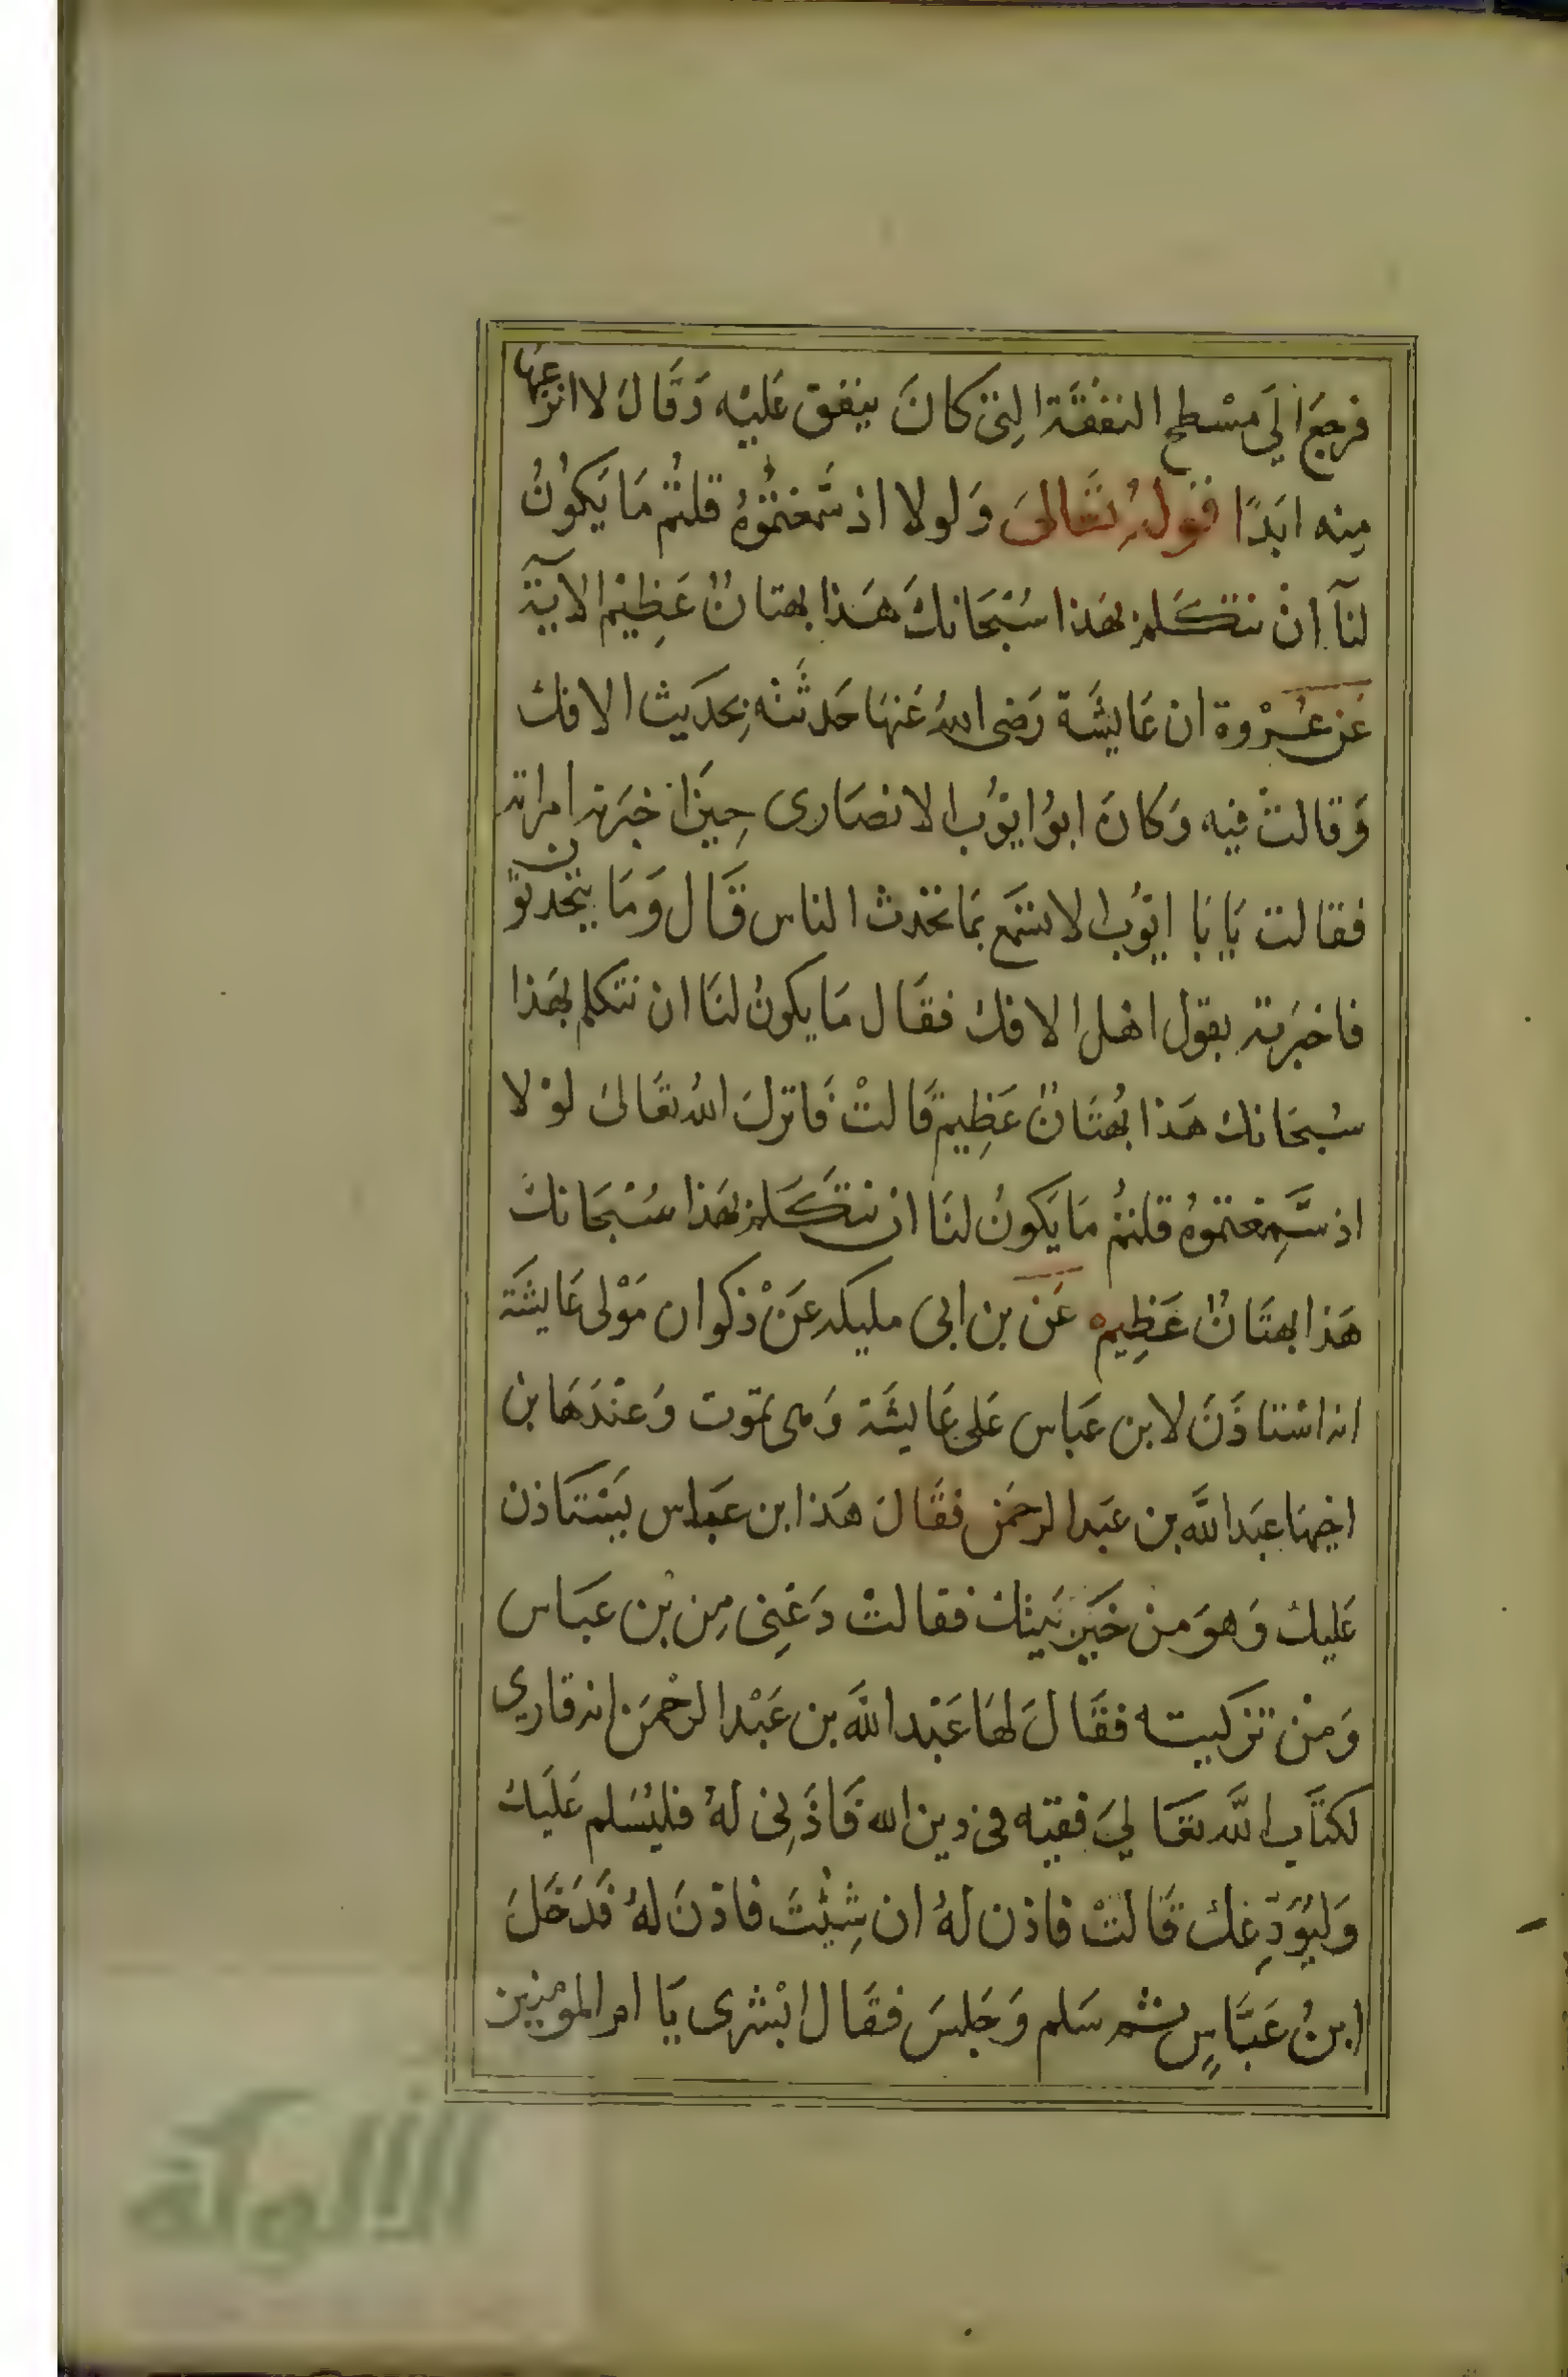 فرجع الى مسطح النفقة التى كان ينفق عليه وقال لا انزعها
منه ابدا قوله تعالى ولولا اذ سمعتموه قلتم ما يكون
لنا ان نتكلم بهذا سبحانك هذا بهتان عظيم الاية
عن عروة ان عايشة رضى الله عنها حدثته بحديث الافك
وقالت فيه وكان ابو ايوب الانصارى حين اخبرته امراته
فقالت يابا ايوب الا تسمع بما تحدث الناس قال وما يتحدثون
فاخبرته بقول اهل الافك فقال ما يكون لنا ان نتكلم بهذا
سبحانك هذا بهتان عظيم قالت فانزل الله تعالى لولا
اذ سمعتموه قلتم ما يكون لنا ان نتكلم بهذا سبحانك
هذا بهتان عظيم عن بن ابى مليكه عن ذكوان مولى عايشة
انه استاذن لابن عباس على عايشة وهى تموت وعندها بن
اخيها عبد الله بن عبد الرحمن فقال هذا ابن عباس يستاذن
عليك وهو من خير بيتك فقالت دعنى من بن عباس
ومن تزكيته فقال لها عبد الله بن عبد الرحمن انه قارى
لكتاب الله تعالى فقيه فى دين الله فاذنى له فليسلم عليك
وليودعك قالت فاذن له ان شئت فاذن له فدخل
ابن عباس ثم سلم وجلس فقال ابشرى يا ام المومنين
الألوكة